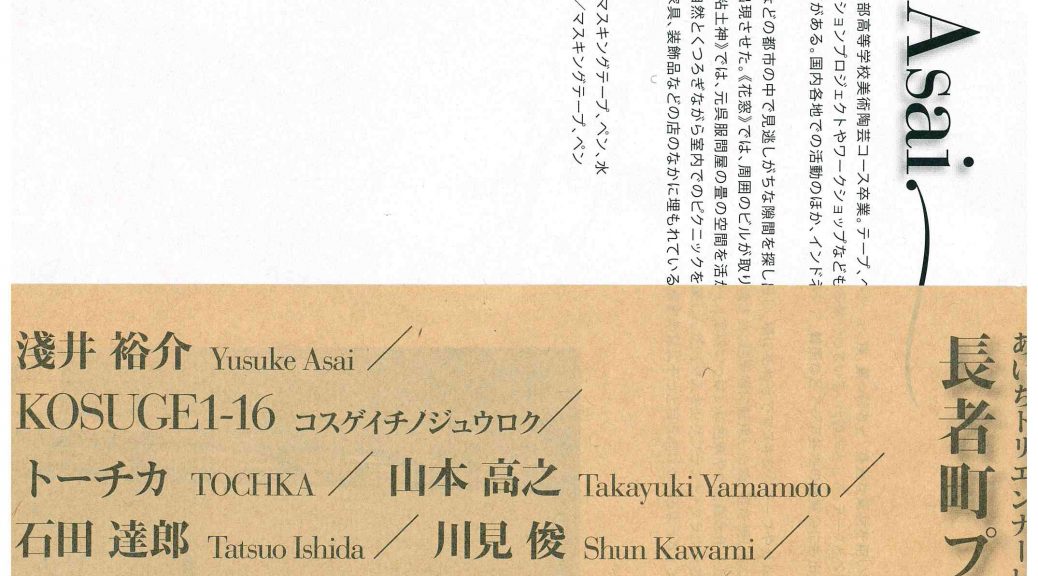 Asai.
部高等学校美術陶芸コース卒業。テープ、
ションプロジェクトやワークショップなども
がある。国内各地での活動のほか、インドネ
などの都市の中で見逃しがちな隙間を探し
出現させた。《花窓》では、周囲のビルが取り
粘土神》では、元呉服問屋の畳の空間を活か
自然とくつろぎながら室内でのピクニックを
家具、装飾品などの店のなかに埋もれている
マスキングテープ、ペン、水
／マスキングテープ、ペン
あいちトリエンナーレ
長者町プ
淺井 裕介 Yusuke Asai ／
KOSUGE1-16 コスゲイチノジュウロク／
トーチカ TOCHKA ／ 山本 高之 Takayuki Yamamoto ／
石田 達郎 Tatsuo Ishida ／ 川見 俊 Shun Kawami ／